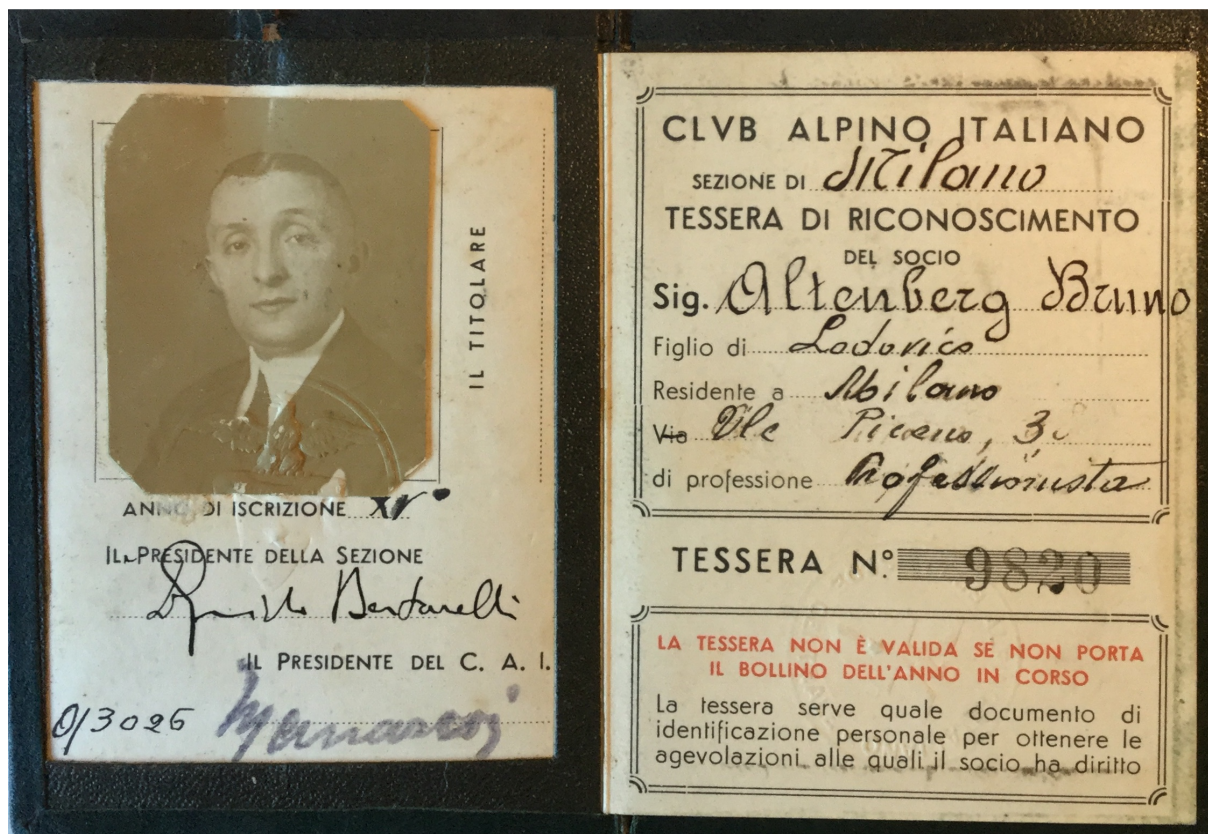 IL TITOLARE
ANNO DI ISCRIZIONE XV°
IL PRESIDENTE DELLA SEZIONE
Bertarelli
IL PRESIDENTE DEL C. A. I.
0/3026
CLVB ALPINO ITALIANO
SEZIONE DI Milano
TESSERA DI RICONOSCIMENTO
DEL SOCIO
Sig. Altenberg Bruno
Figlio di Lodovico
Residente a Milano
Via Vle Piceno, 3
di professione Professionista
TESSERA N.° 9820
LA TESSERA NON È VALIDA SE NON PORTA
IL BOLLINO DELL'ANNO IN CORSO
La tessera serve quale documento di
identificazione personale per ottenere le
agevolazioni alle quali il socio ha diritto